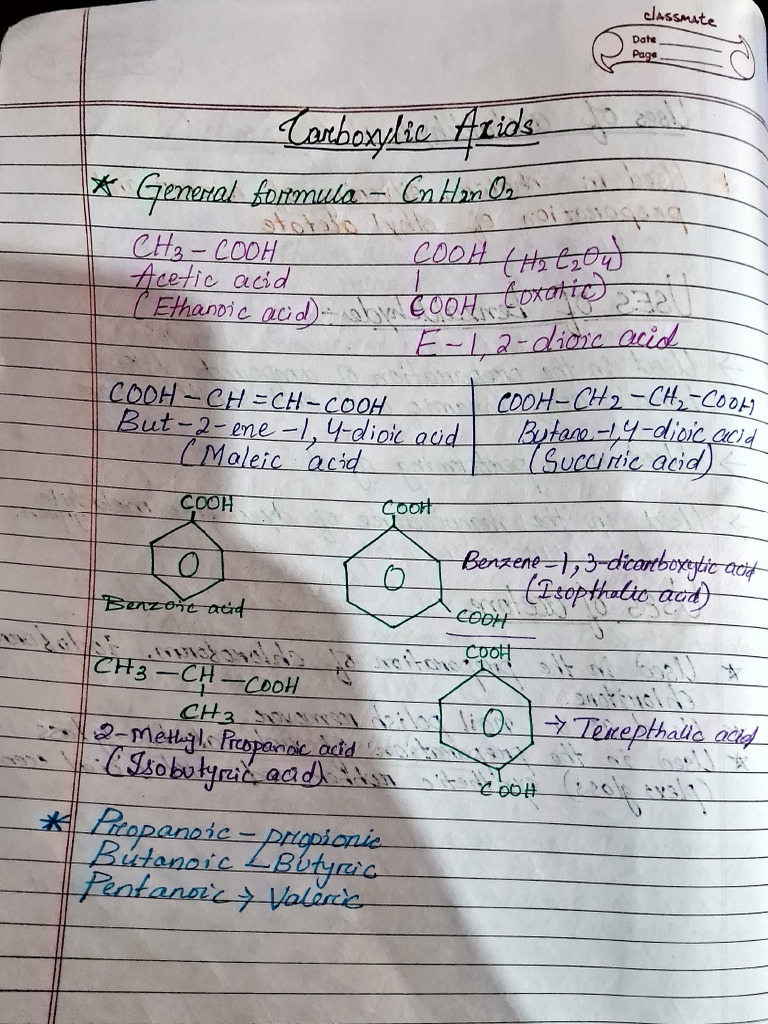 classmate
Date
Page
Carboxylic Acids
* General formula - CnH2nO2
CH3 - COOH
Acetic acid
(Ethanoic acid)
COOH (H2C2O4)
| (oxalic)
COOH
E-1, 2-dioic acid
COOH - CH = CH - COOH
But-2-ene-1, 4-dioic acid
(Maleic acid
COOH-CH2-CH2-COOH
Butane-1,4-dioic acid
(Succinic acid)
COOH
Benzoic acid
COOH
COOH
Benzene-1, 3-dicarboxylic acid
(Isopthalic acid)
CH3 - CH - COOH
CH3
2-Methyl Propanoic acid
(Isobutyric acid)
COOH
COOH
→ Terepthalic acid
* Propanoic - propionic
Butanoic - Butyric
Pentanoic → Valeric